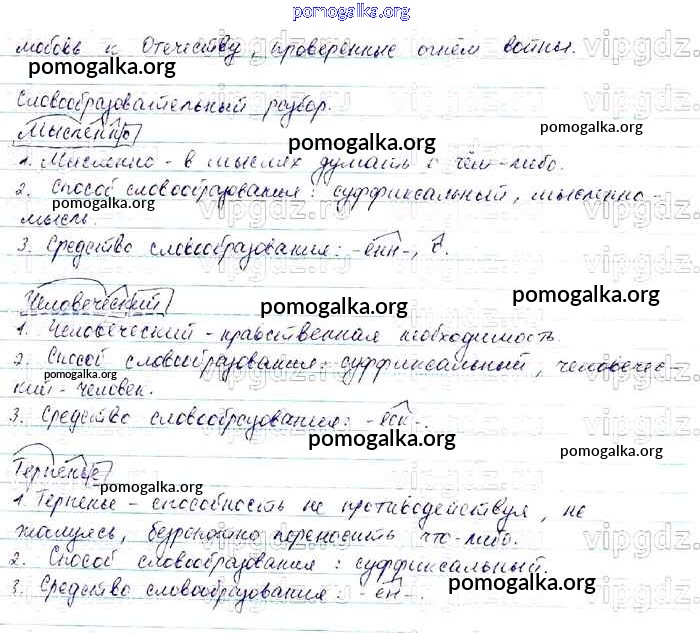 pomogalka.org
любовь к Отечеству, проверенные огнём войны.
pomogalka.org
Словообразовательный разбор.
Мысленно
pomogalka.org
pomogalka.org
1. Мысленно - в мыслях думать о чём-либо.
2. Способ словообразования: суффиксальный, мысленно -
pomogalka.org
мысль.
3. Средство словообразования: -енн-,
pomogalka.org
Человеческий
pomogalka.org
pomogalka.org
1. Человеческий - нравственная необходимость.
2. Способ словообразования: суффиксальный, человечес-
pomogalka.org
кий - человек.
3. Средство словообразования: -еск-.
pomogalka.org
pomogalka.org
Терпенье
pomogalka.org
1. Терпенье - способность не противодействуя, не
жалуясь, безропотно переносить что-либо.
2. Способ словообразования: суффиксальный.
3. Средство словообразования: -ен-.
pomogalka.org
pomogalka.org
vipgdz.ru